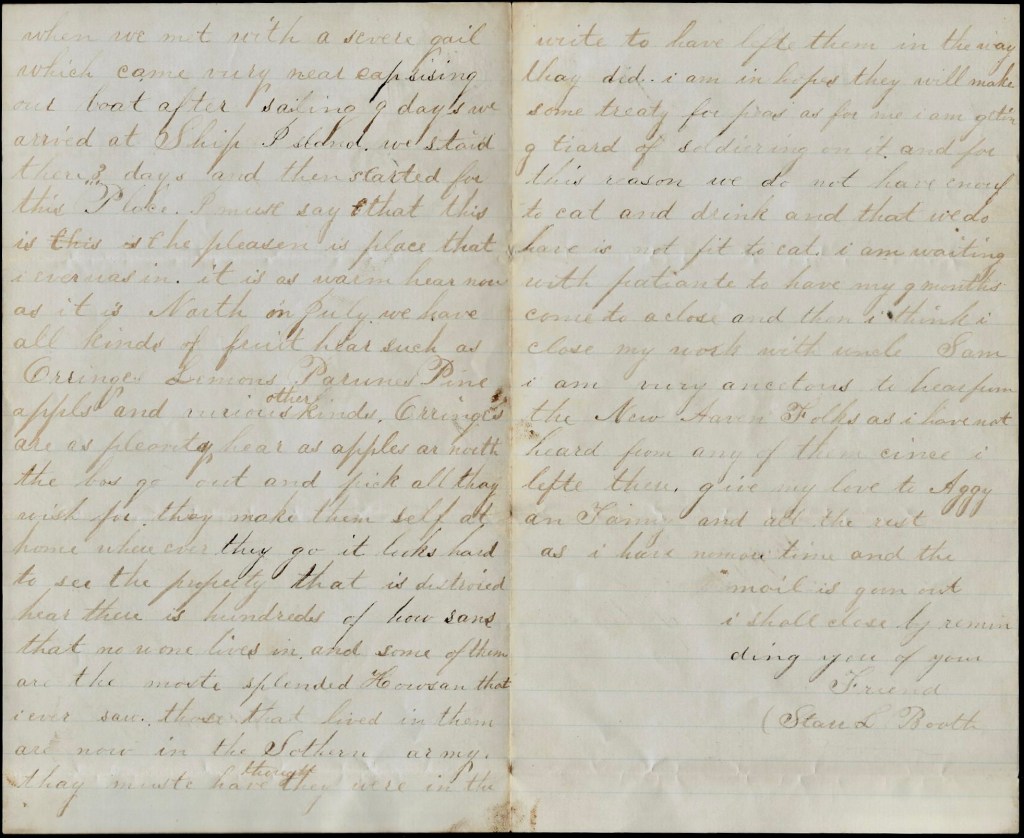 when we met with a severe gail
which came very near capsising
our boat after sailing 9 days we
arrived at Ship Island. we staid
there 3 days and then started for
this Place. I must say that this
is this is the pleasen is place that
i ever was in. it is as warm hear now
as it is North in July. we have
all kinds of fruit hear such as
Orringes Limons Parunes Pine
apples and verious other kinds. Orringes
are as pleanty hear as apples ar north
the bos go out and pick all thay
wish for. they make them self at
home where ever they go it looks hard
to see the property that is distroied
hear there is hundreds of how sans
that no one lives in. and some of them
are the moste splended Howsan that
i ever saw. those that lived in them
are now in the Sothern army.
thay muste have though they were in the
write to have lefte them in the way
thay did. i am in hopes they will make
some treaty for peas as for me i am getin
g tiard of soldiering on it. and for
this reason we do not have enouf
to eat and drink and that we do
have is not fit to eat. i am waiting
with patiante to have my 9 months
come to a close and then i think i
close my work with uncle Sam
i am very ancetous to hear from
the New Haven Folks as i have not
heard from any of them cince i
lefte there. give my love to Aggy
an Fanny and all the rest
as i have nomore time and the
mail is gon out
i shall close by remin
ding you of your
Friend
(Stau L Booth